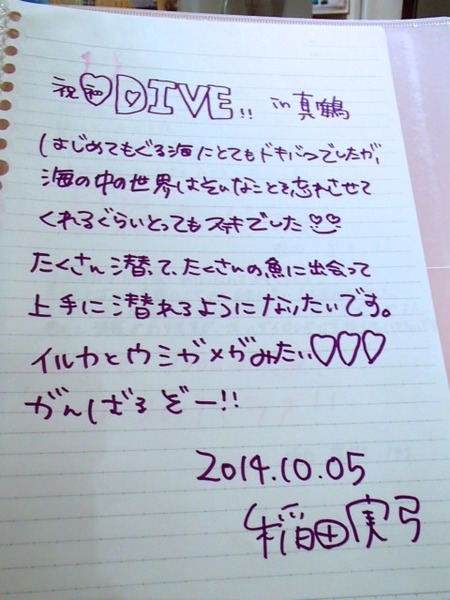 祝初DIVE!! in 真鶴
はじめてもぐる海にとてもドキバクでしたが、
海の中の世界はそんなことを忘れさせて
くれるぐらいとってもステキでした
たくさん潜って、たくさんの魚に出会って
上手に潜れるようになりたいです。
イルカとウミガメがみたい♡♡♡
がんばるぞー!!
2014.10.05
稲田実弓